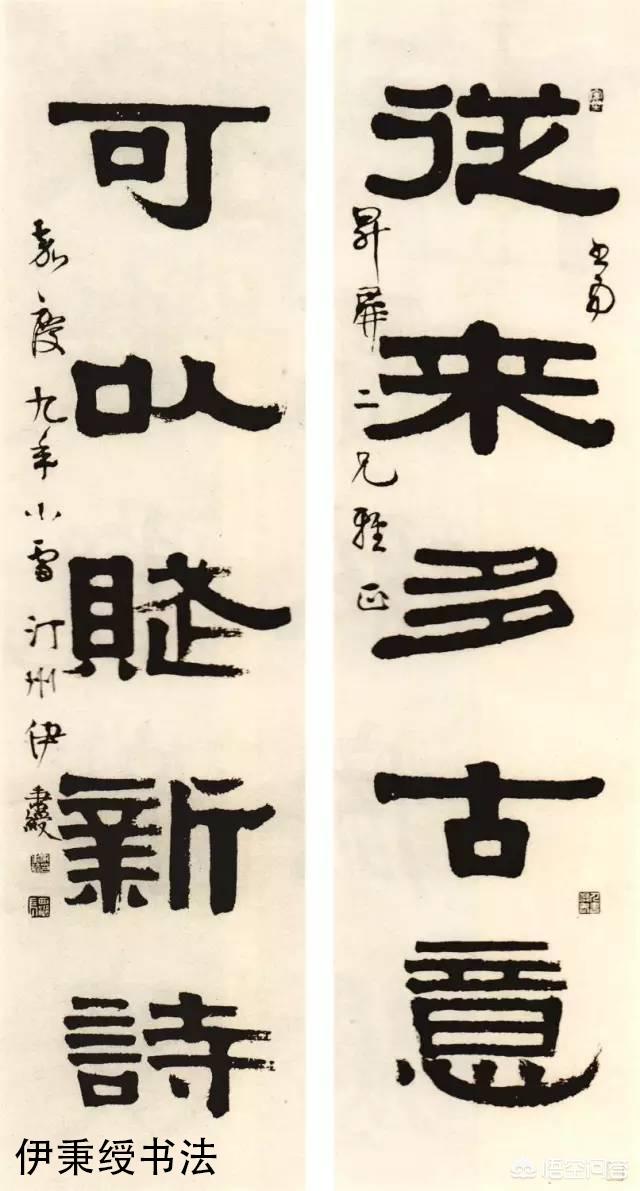 從来多古意
昇屏二兄雅正
可以賦新詩
嘉慶九年小雪汀州伊秉綬
伊秉绶书法
悟空问答